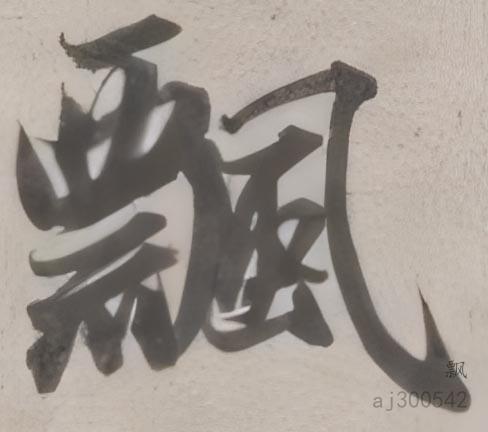 飄
飘
aj300542